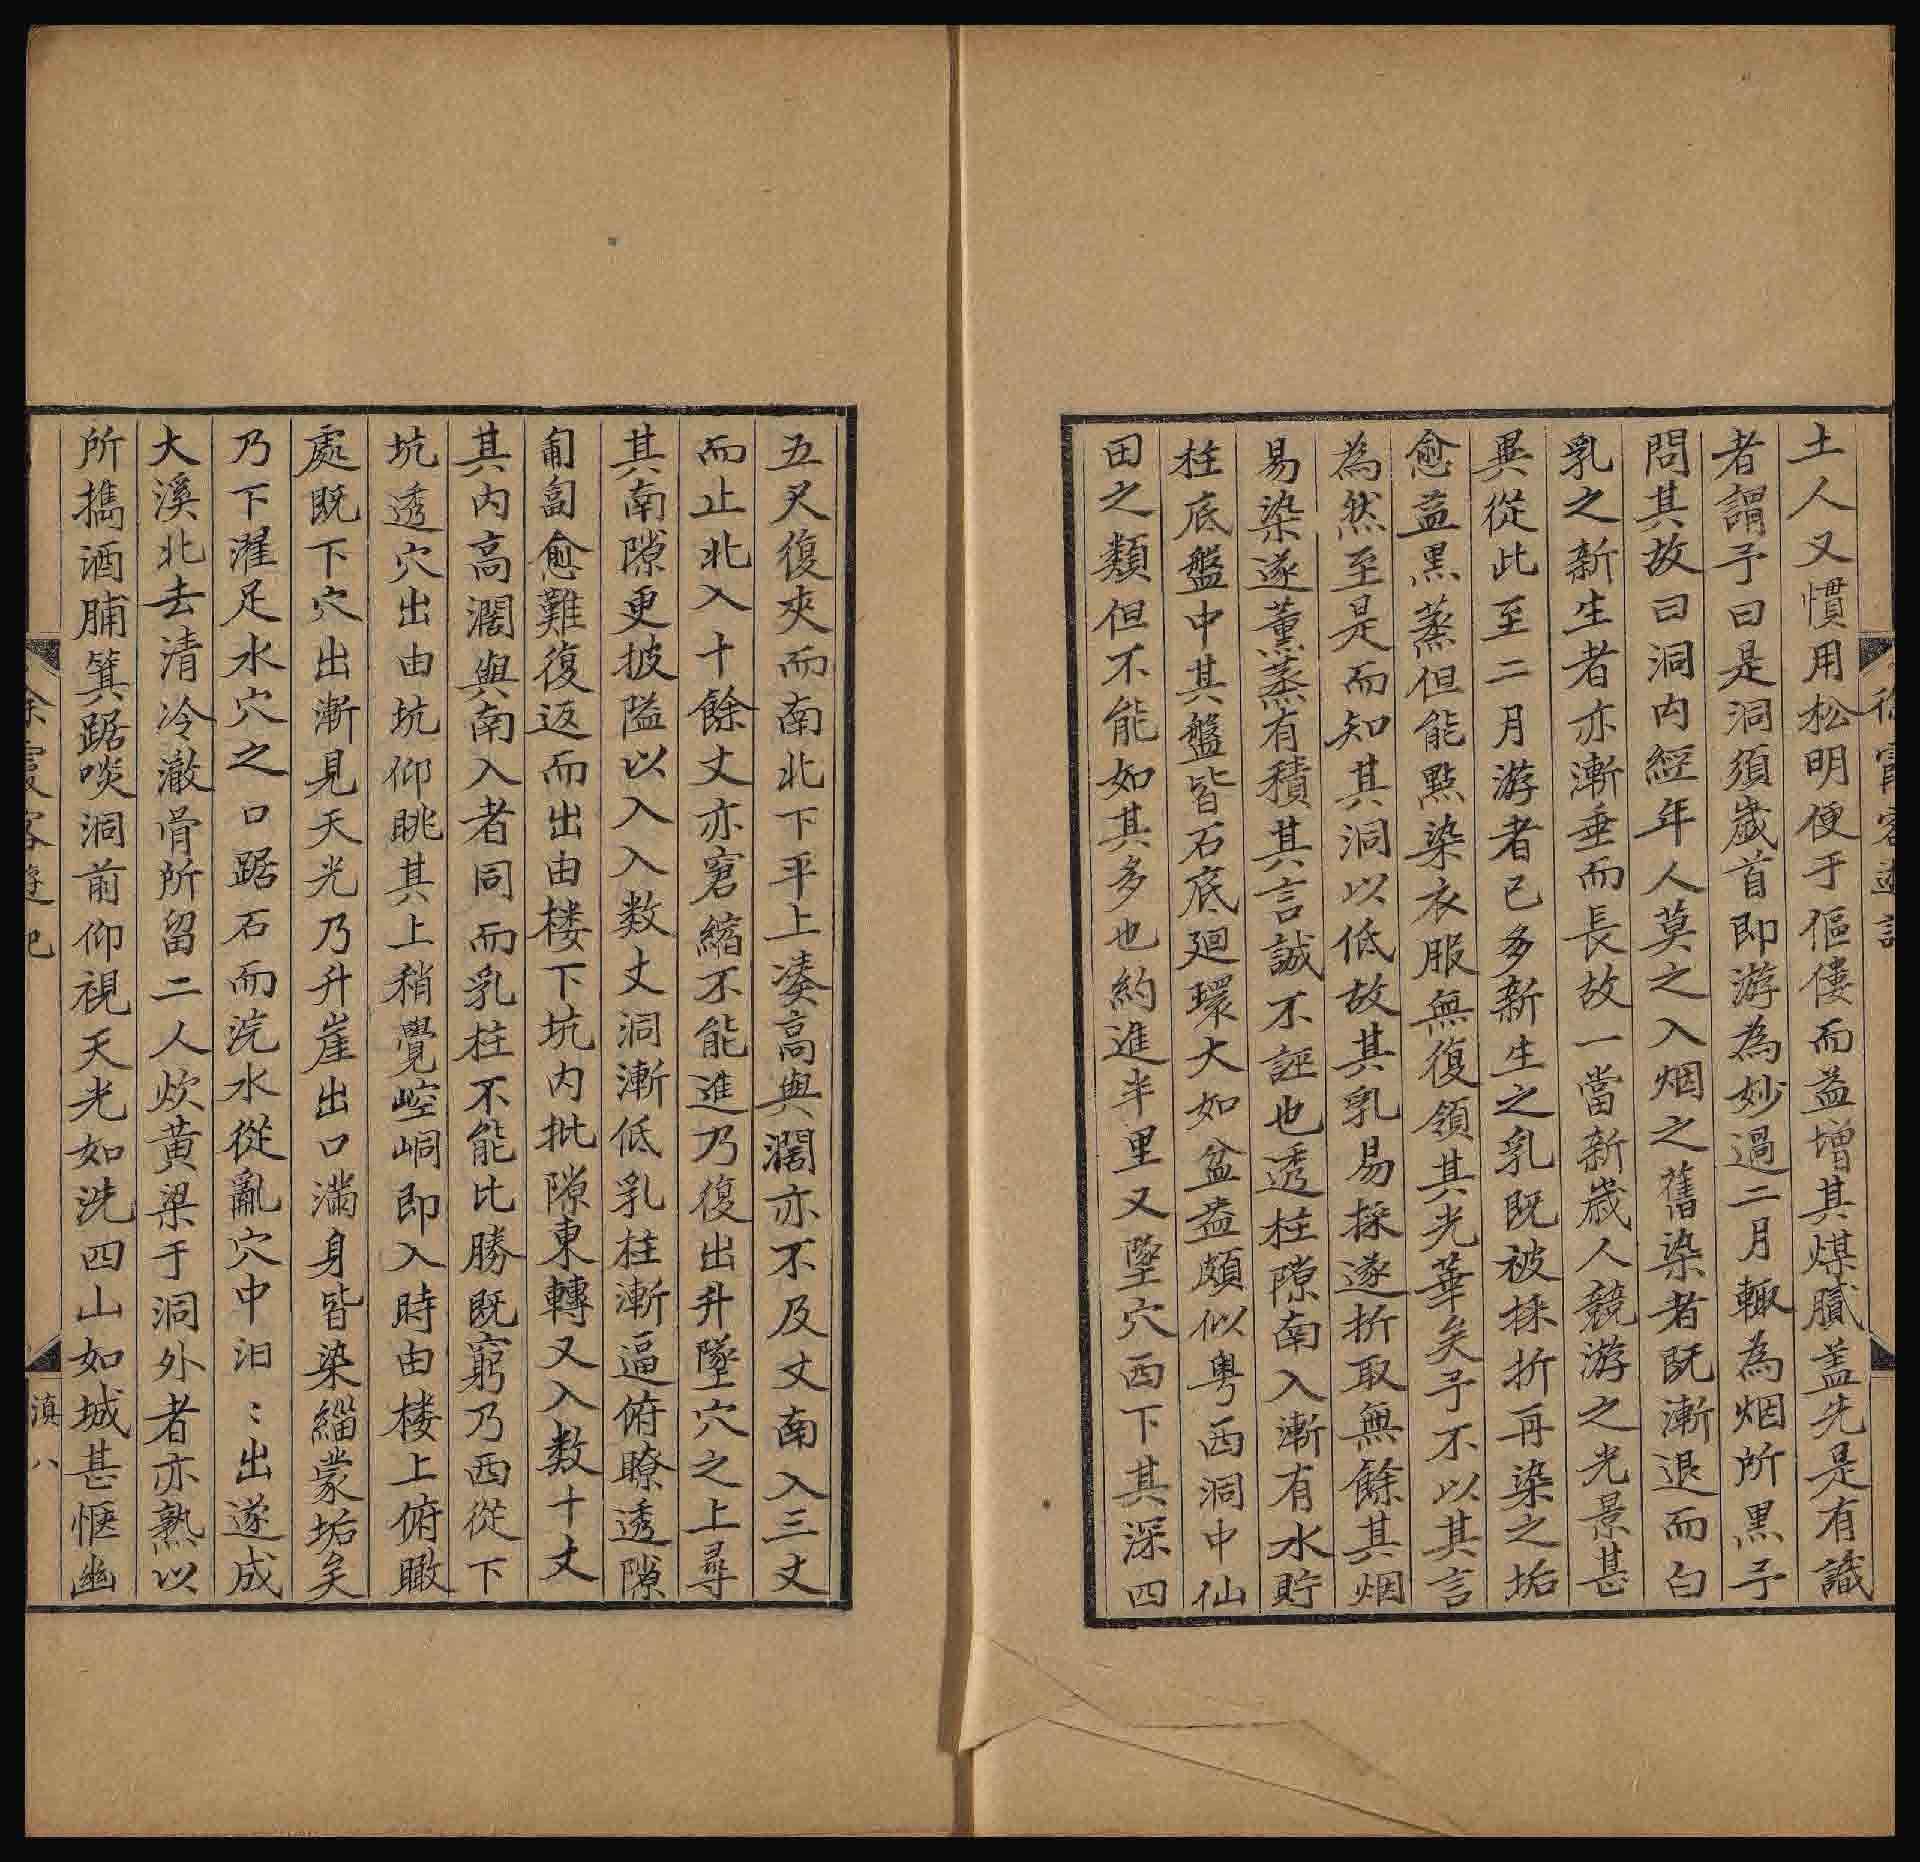 徐霞客遊記
土人又慣用松明便于傴僂而益增其煤膩盖先是有識
者謂予曰是洞須歲首即游為妙過二月輙為烟所黑予
問其故曰洞内經年人莫之入烟之舊染者既漸退而白
乳之新生者亦漸垂而長故一當新歲人競游之光景甚
異從此至二月游者已多新生之乳既被採折再染之垢
愈益黑蒸但能點染衣服無復領其光華矣予不以其言
為然至是而知其洞以低故其乳易採遂折取無餘其烟
易染遂薰蒸有積其言誠不誣也透柱隙南入漸有水貯
柱底盤中其盤皆石底廻環大如盆盎頗似粤西洞中仙
田之類但不能如其多也約進半里又墜穴西下其深四
五尺復夾而南北下平上湊高與濶亦不及丈南入三丈
而止北入十餘丈亦窘縮不能進乃復出升墜穴之上尋
其南隙更披隘以入入数丈洞漸低乳柱漸逼俯瞭透隙
匍匐愈難復返而出由楼下坑内批隙東轉又入数十丈
其内高濶與南入者同而乳柱不能比勝既窮乃西從下
坑透穴出由坑仰眺其上稍覺崆峒即入時由楼上俯瞰
處既下穴出漸見天光乃升崖出口滿身皆染緇蒙垢矣
乃下濯足水穴之口踞石而浣水從亂穴中汩〻出遂成
大溪北去清冷澈骨所留二人炊黄粱于洞外者亦熟以
所攜酒脯箕踞啖洞前仰視天光如洗四山如城甚愜幽
徐霞客遊記
滇八